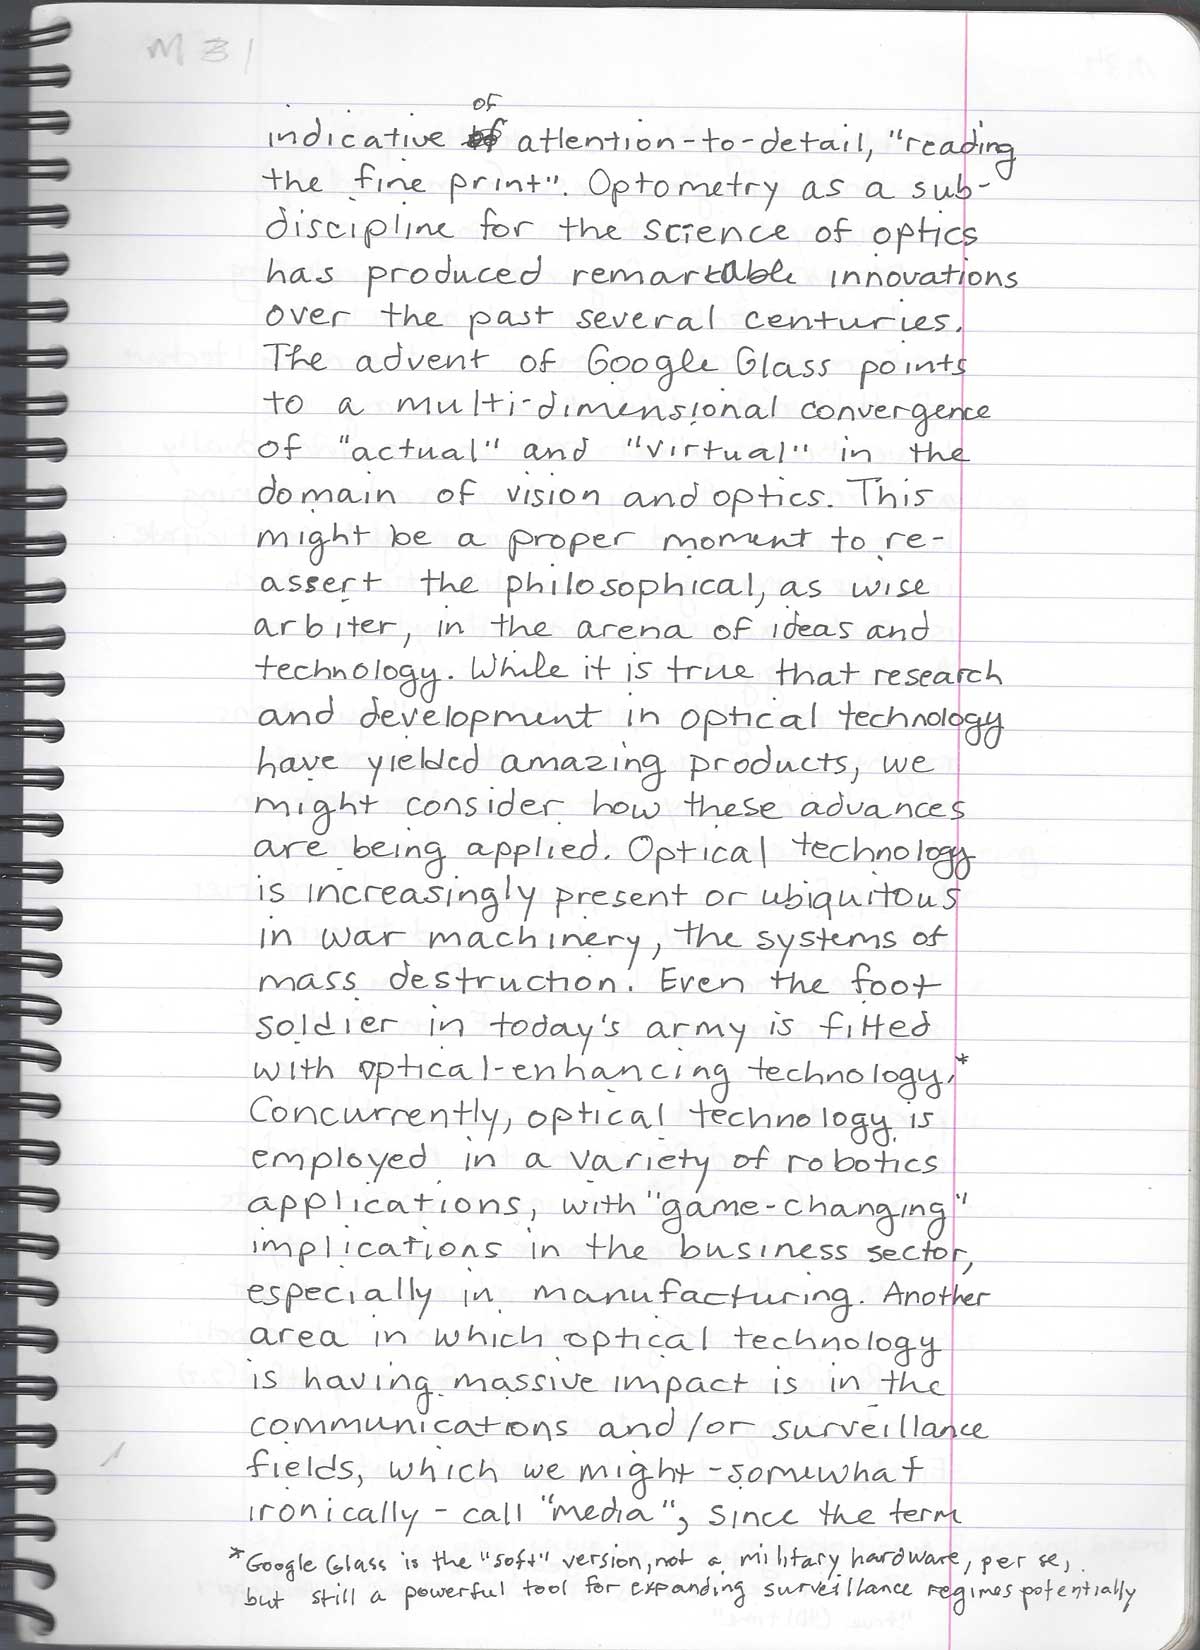 M 31
of
indicative of attention-to-detail, "reading
the fine print". Optometry as a sub-
discipline for the science of optics
has produced remarkable innovations
over the past several centuries.
The advent of Google Glass points
to a multi-dimensional convergence
of "actual" and "virtual" in the
domain of vision and optics. This
might be a proper moment to re-
assert the philosophical, as wise
arbiter, in the arena of ideas and
technology. While it is true that research
and development in optical technology
have yielded amazing products, we
might consider how these advances
are being applied. Optical technology
is increasingly present or ubiquitous
in war machinery, the systems of
mass destruction. Even the foot
soldier in today's army is fitted
with optical-enhancing technology.*
Concurrently, optical technology is
employed in a variety of robotics
applications, with "game-changing"
implications in the business sector,
especially in manufacturing. Another
area in which optical technology
is having massive impact is in the
communications and/or surveillance
fields, which we might - somewhat
ironically - call "media", since the term
*Google Glass is the "soft" version, not a military hardware, per se,
but still a powerful tool for expanding surveillance regimes potentially